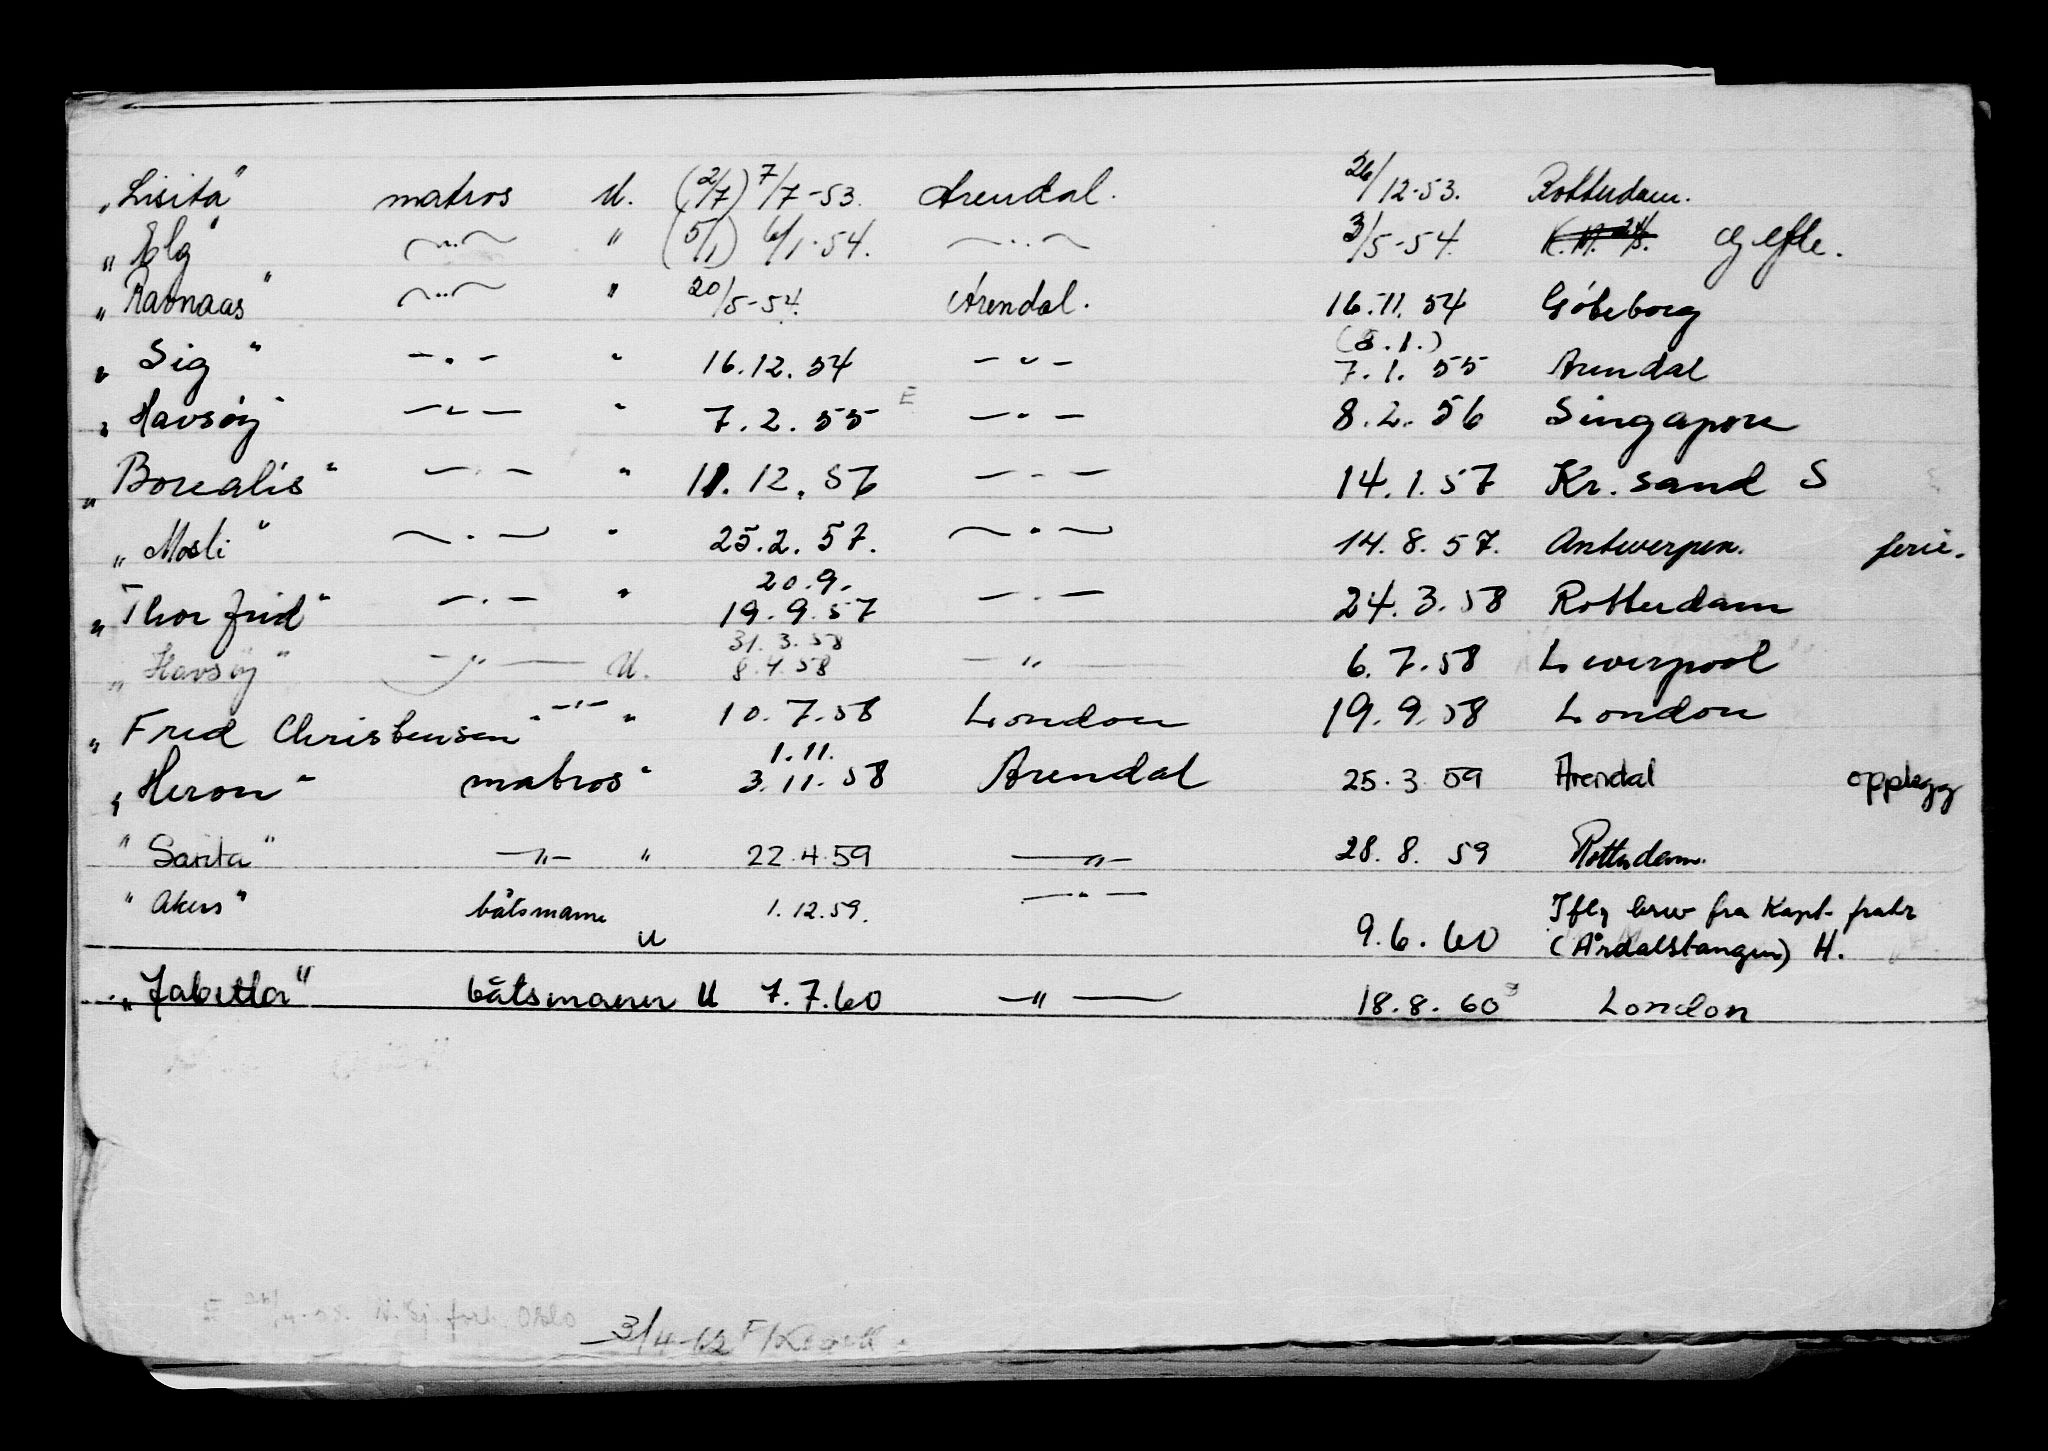 „Lisita" matros U. (2/7) 7/7-53. Arendal. 26/12-53. Rotterdam.
„Elg" —"— " (5/1) 6/1-54. —"— 3/5-54. og efle.
„Ravnaas" —"— " 20/5-54. Arendal. 16.11.54 Göteborg
(3.1.)
„Sig" —"— " 16.12.54 —"— 7.1.55 Arendal
„Havsøy" —"— " 7.2.55 E —"— 8.2.56 Singapore
„Borealis" —"— " 11.12.56 —"— 14.1.57 Kr.sand S
„Mosli" —"— " 25.2.57. —"— 14.8.57. Antwerpen. ferie.
20.9.
„Thorfrid" —"— " 19.9.57 —"— 24.3.58 Rotterdam
31.3.58
„Havsøy" —"— U. 8.4.58 —"— 6.7.58 Liverpool
„Fred Christensen" —"— " 10.7.58 London 19.9.58 London
1.11.
„Heron" matros " 3.11.58 Arendal 25.3.59 Arendal opplegg
"Sarita" —"— " 22.4.59 —"— 28.8.59 Rotterdam.
"Akers" båtsmann U 1.12.59. —"— 9.6.60 Iflg brev fra Kapt.
(Årdalstangen) H.
„Jabetta" båtsmann U 7.7.60 —"— 18.8.60 London
Oslo
3/4-62